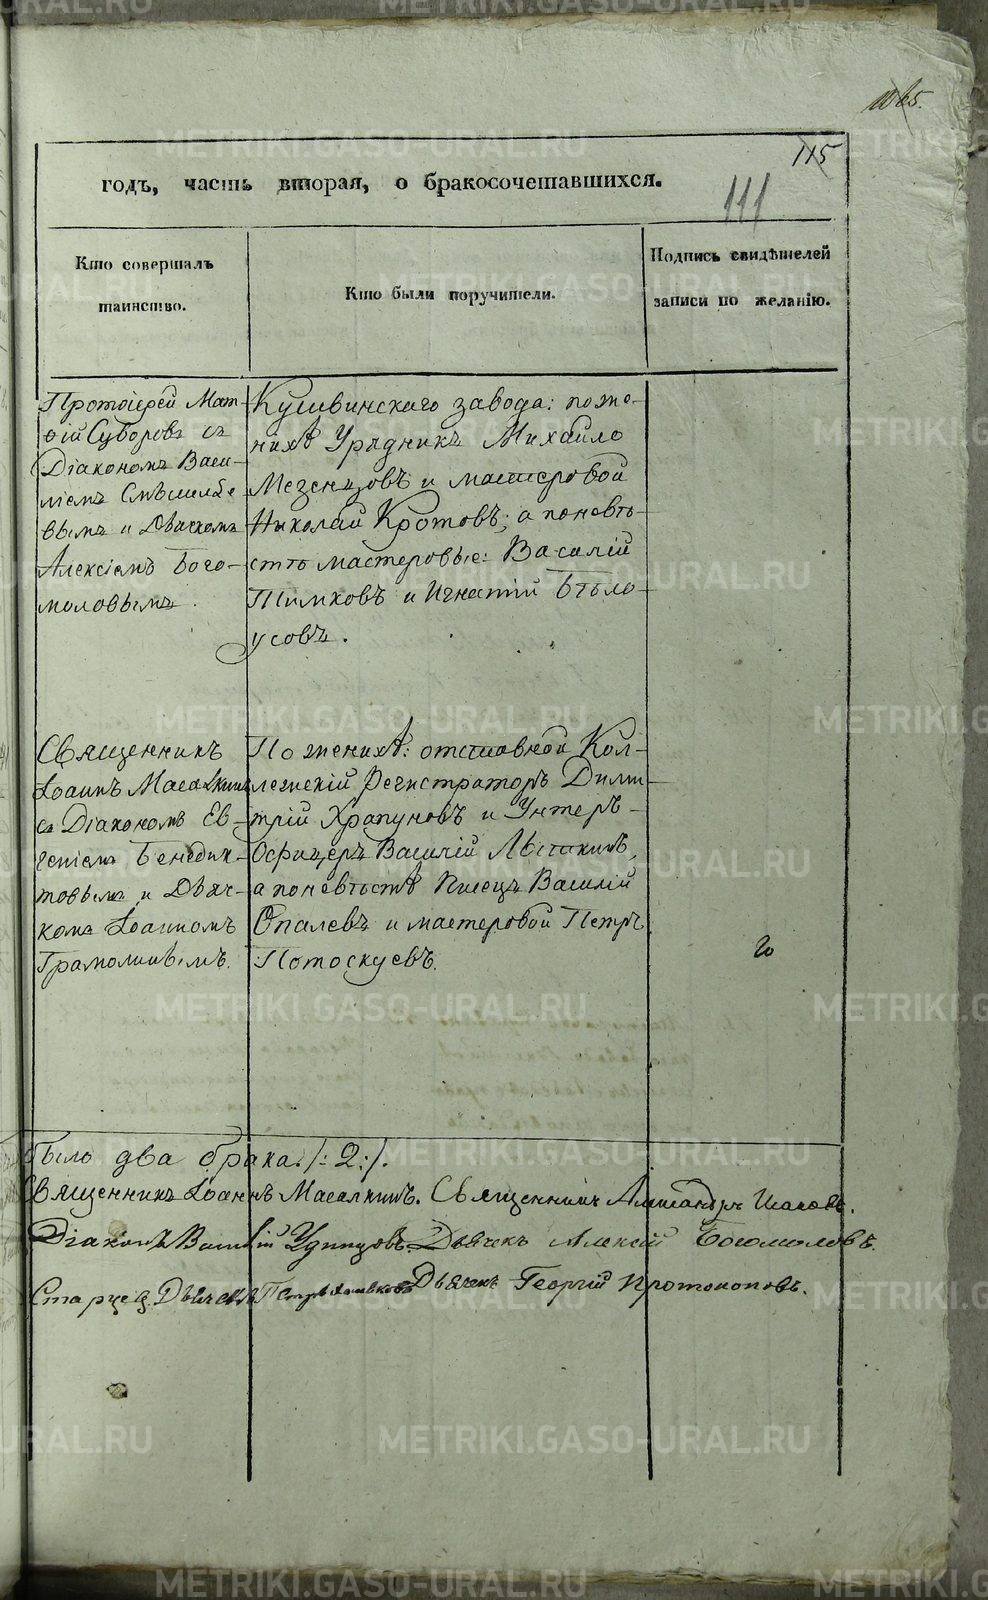 115
111
годъ, часть вторая, о бракосочетавшихся.
Кто совершалъ
таинство.
Кто были поручители.
Подпись свидѣтелей
записи по желанію.
Протоіерей Мат-
ѳій Суворовъ съ
Діакономъ Васи-
ліемъ
вымъ и Дьячкомъ
Алексіемъ Бого-
моловымъ.
Кушвинскаго завода: по же-
нихѣ Урядникъ Михайло
Мезенцовъ и мастеровой
Николай Кротовъ; а по невѣ-
стѣ мастеровые: Василій
Тимховъ и Игнатій Бѣло-
усовъ.
Священникъ
Іоаннъ Масалкинъ
съ Діакономъ Ев-
геніемъ Бенедик-
товымъ и Дьяч-
комъ Іоанномъ
Грамолинымъ.
По женихѣ: отставной Кол-
лежскій Регистраторъ Дими-
трій Храпуновъ и Унтеръ-
Офицеръ Василій
а по невѣстѣ Писецъ Василій
Опалевъ и мастеровой Петръ
Потоскуевъ.
было два брака /:2:/.
Священникъ Іоаннъ Масалкинъ. Священникъ Александръ
Діаконъ Василій Удинцовъ. Дьячекъ Алексій Богомоловъ.
Дьячекъ Петръ Дьячекъ Георгій Протопоповъ.
METRIKI.GASO-URAL.RU